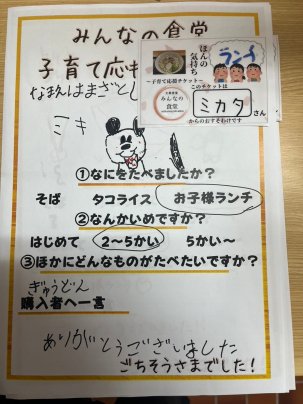 みんなの食堂
子育て応
ほんの
気持ち
ランチ
~子育て応援チケット~
みんなの
食堂
このチケットは
ミカタ さん
からのおすそわけです
なまえはまさと
ミキ
①なにをたべましたか?
そば タコライス お子様ランチ
②なんかいめですか?
はじめて 2~5かい 5かい~
③ほかにどんなものがたべたいですか?
ぎゅうどん
購入者へ一言
ありがとうございました
ごちそうさまでした!